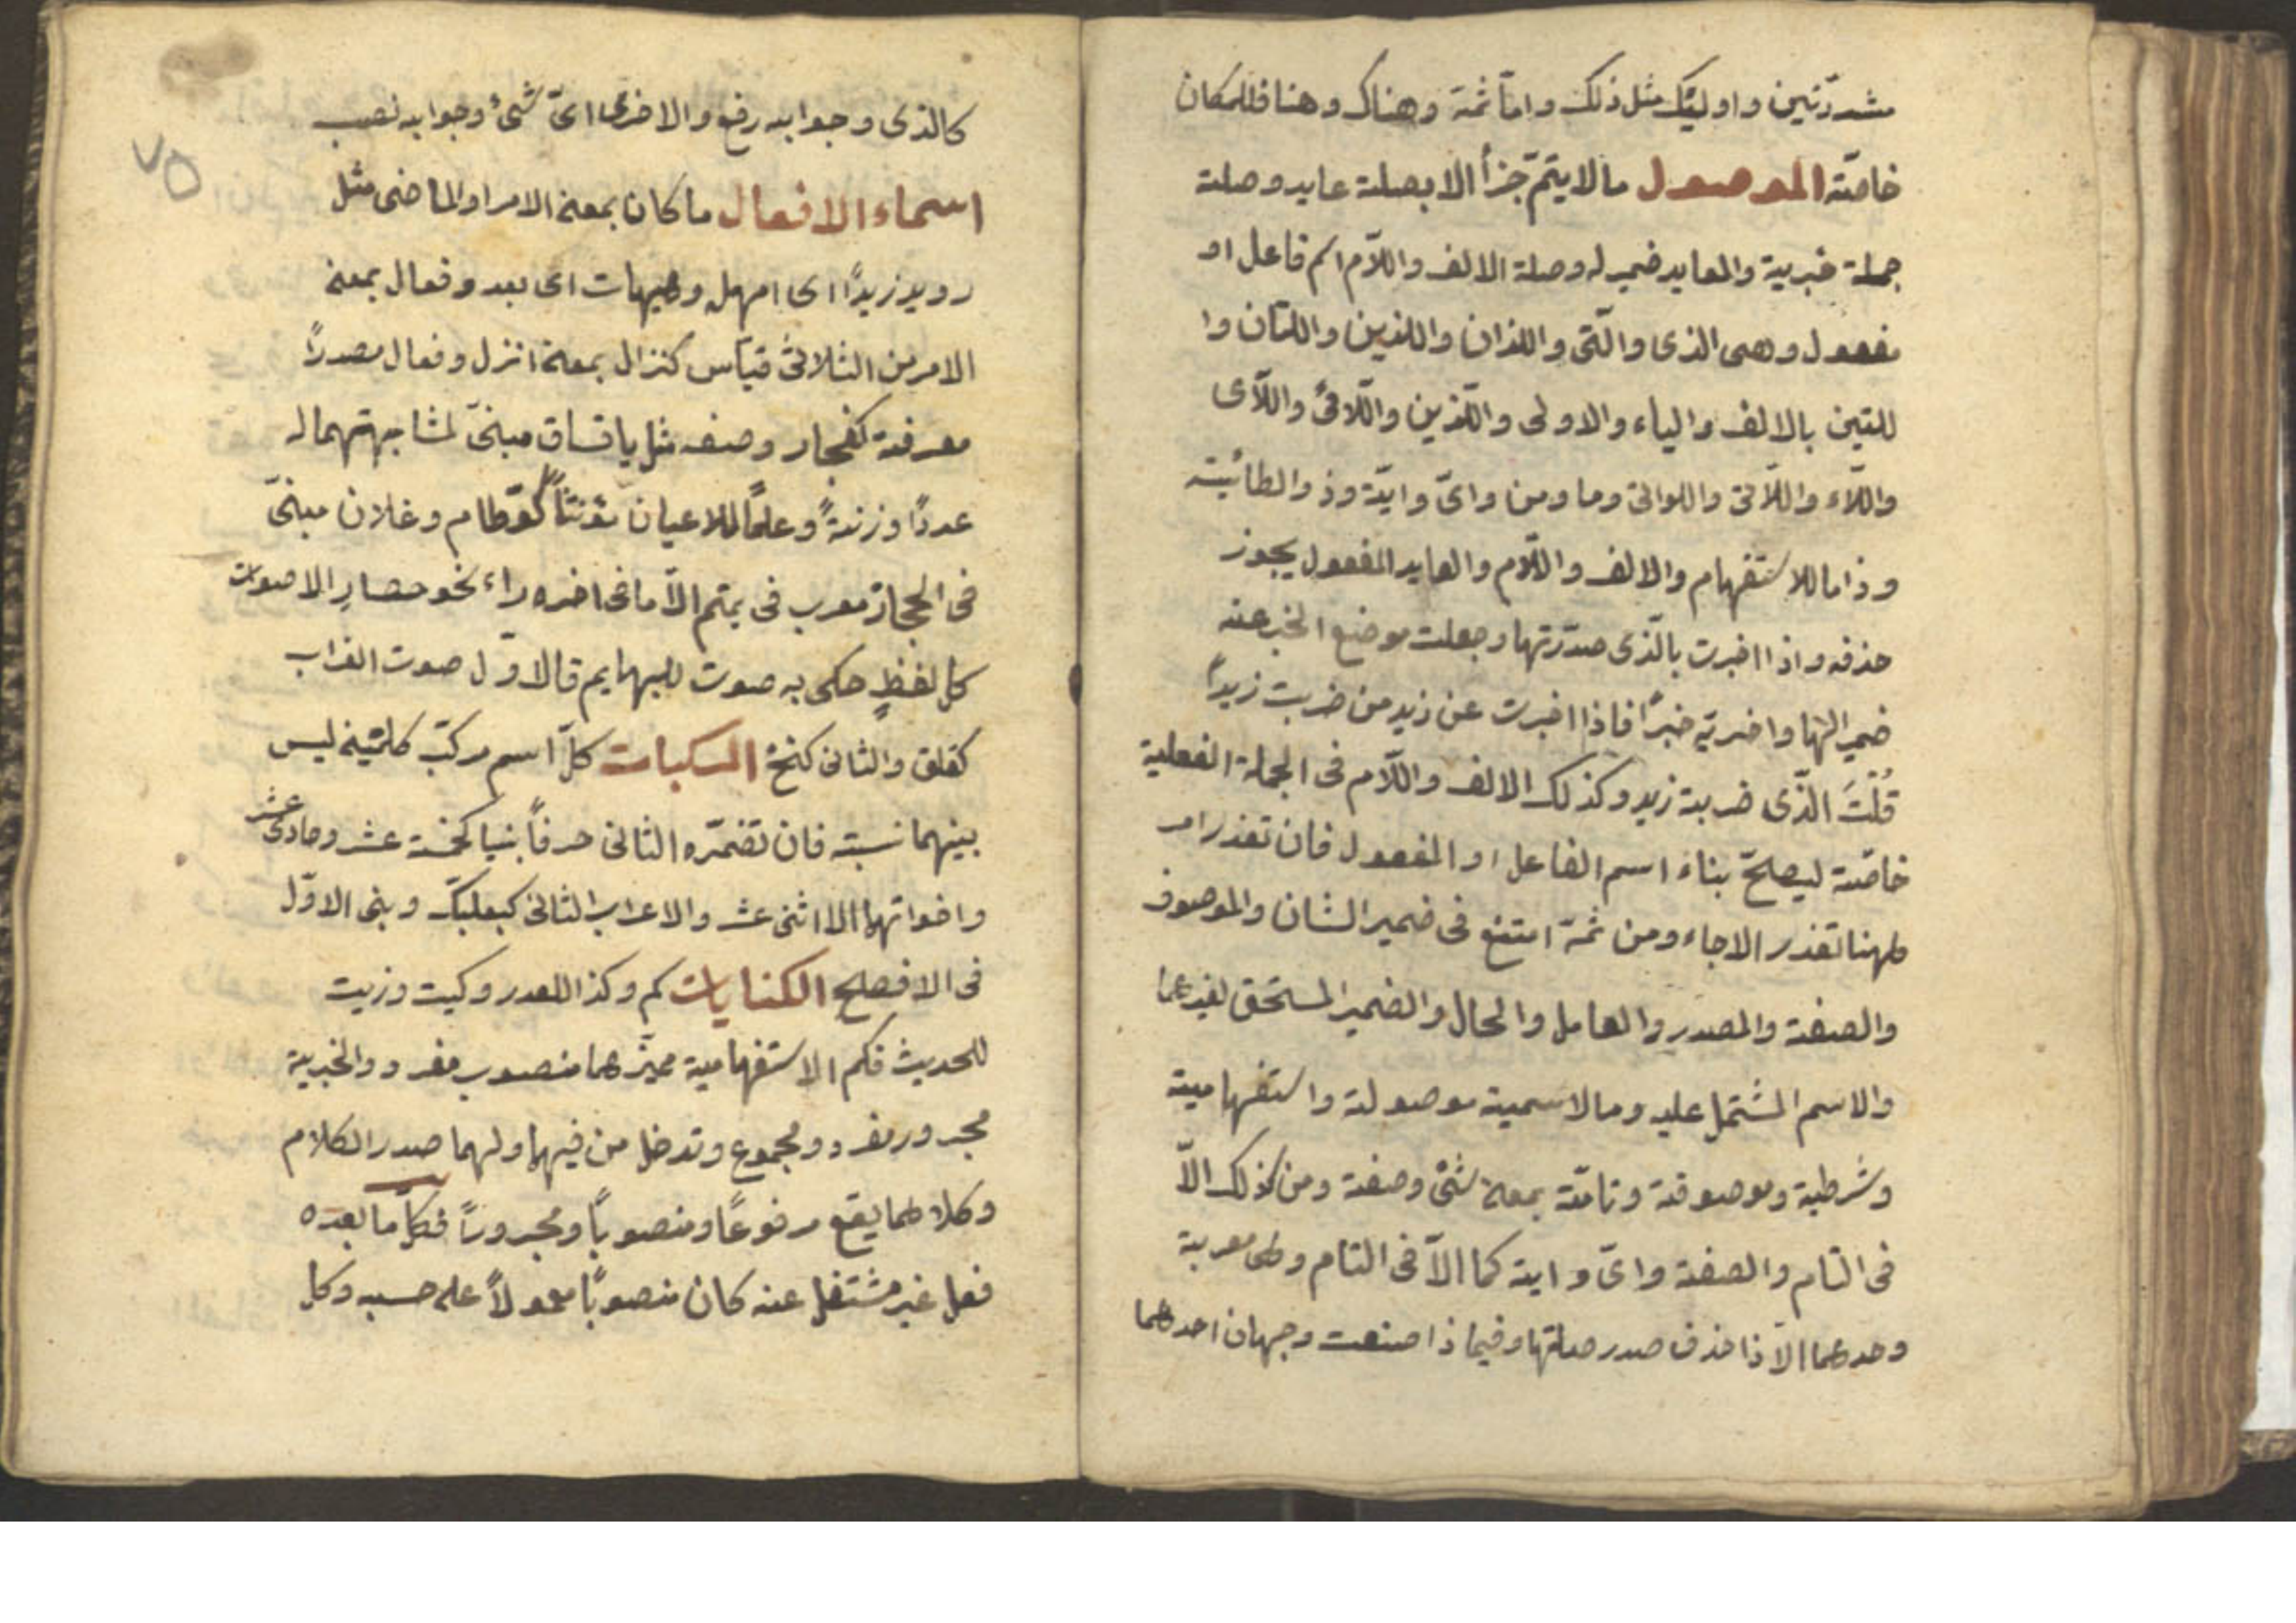 مشددتين واوليك مثل ذلك واما ثمة وهناك وهنا فللمكان
خاصة الموصول ما لا يتم جزأ الا بصلة عايد وصلته
جملة خبرية والعايد ضمير له وصلة الالف واللام اسم فاعل او
مفعول وهى الذى والتى واللذان واللذين واللتان وا
للتين بالالف والياء والاولى والذين واللائى واللآى
واللآء واللآتى واللواتى وما ومن واىّ وايّة وذو الطائية
وذا ما للاستفهام والالف واللام والعايد المفعول يجوز
حذفه واذا اخبرت بالذى صدّرتها وجعلت موضع المخبر عنه
ضمير الها واخرته خبرًا فاذا اخبرت عن زيد من ضربت زيدًا
قُلْتَ الّذى ضربته زيد وكذلك الالف واللام فى الجملة الفعلية
خاصّة ليصلحّ بناء اسم الفاعل او المفعول فان تعذر امر
منها تعذر الاخبار ومن ثمة امتنع فى ضمير الشان والموصوف
والصفة والمصدر والعامل والحال والضمير المستحق لغيرها
والاسم المشتمل عليه وما الاسمية موصولة واستفهامية
وشرطية وموصوفة وتامّة بمعنى شئ وصفة ومن كذلك الاّ
فى التام والصفة واىّ واية كما الاّ فى التام وهى معربة
وحدهما الا ذا حذف صدر صلتها وفيما ذا صنعت وجهان احدهما
كالذى وجوابه رفع والاخرى اىّ شئ وجوابه نصب
٧٥
اسماء الافعال ما كان بمعنى الامر او الماضى مثل
رويد زيدًا اى امهله وهيهات اى بعد وفعال بمعنى
الامر من الثلاثى قياس كنزال بمعنى انزل وفعال مصدرًا
معرفة كفجار وصفه مثل يا فساق مبنىّ لمشابهتهما له
عدلًا وزنةً وعلمًا للاعيان مؤنثًا كقطام وغلاب مبنىّ
فى الحجاز معرب فى تميم الاّ ما فى اخره راء نحو حضار الاصوات
كل لفظٍ حكى به صوت للبهايم فالاول صوت الغراب
كغاق والثانى كنخ المركبات كلّ اسم مركبّ كلمتين ليس
بينهما نسبة فان تضمنه الثانى حرفًا بنيا كخمسة عشر وحادى عشر
واخواتهما الا اثنى عشر والا اعراب الثانى كبعلبك وبنى الاوّل
فى الافصح الكنايات كم وكذا للعدد وكيت وزيت
للحديث فكم الاستفهامية مميزهما منصوب مفرد والخبرية
مجرور مفرد ومجموع وتدخل من فيهما ولهما صدر الكلام
وكلاهما يقع مرفوعًا ومنصوبًا ومجرورًا فكلّ ما بعده
فعل غير مشتغل عنه كان منصوبًا معمولًا على حسبه وكل